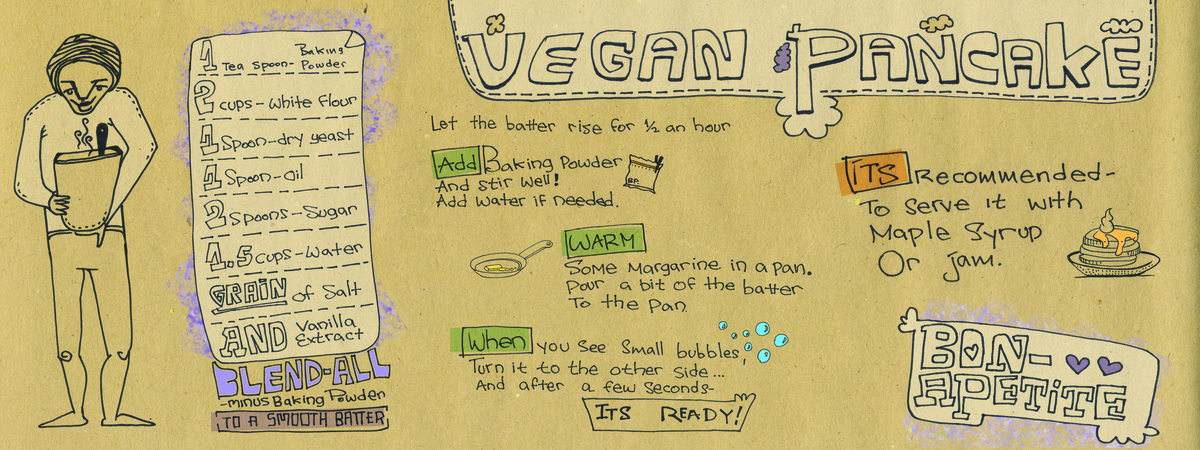 VEGAN PANCAKE
1 Tea Spoon- Baking Powder
2 cups-white flour
1 Spoon-dry yeast
1 Spoon-oil
2 Spoons-Sugar
1.5 cups-water
GRAIN of Salt
AND Vanilla Extract
BLEND-ALL
-minus Baking Powder
TO A SMOOTH BATTER
Let the batter rise for ½ an hour
Add Baking Powder
And stir well!
Add water if needed.
BP.
WARM
Some Margarine in a pan.
Pour a bit of the batter
To the pan
When you see small bubbles!
Turn it to the other side...
And after a few seconds-
ITS READY!
iTS Recommended-
To serve it with
Maple Syrup
Or jam.
BON-
APETiTE